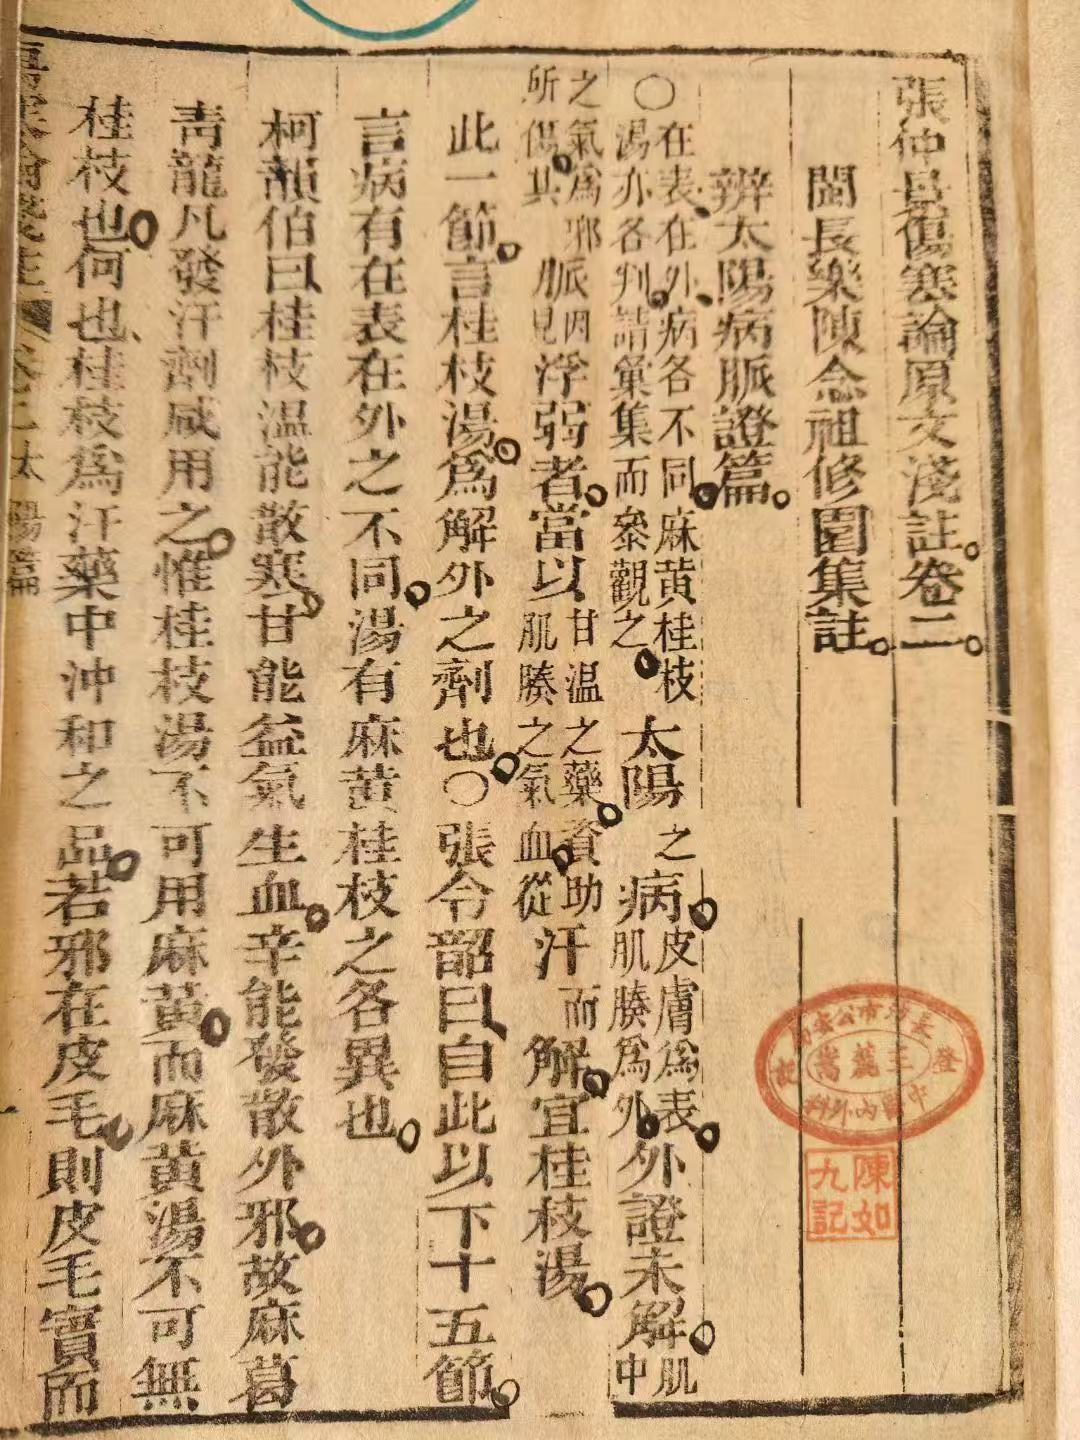 張仲景傷寒論原文淺註卷二
閩長樂陳念祖修園集註
辨太陽病脈證篇
○在表在外病各不同麻黃桂枝湯亦各判請彙集而參觀之太陽之病皮膚爲表肌腠爲外外證未解肌中
之氣爲邪所傷其脈因見浮弱者當以甘溫之藥資助肌腠之氣血從汗而解宜桂枝湯
此一節言桂枝湯爲解外之劑也○張令韶曰自此以下十五節
言病有在表在外之不同湯有麻黃桂枝之各異也
柯韻伯曰桂枝溫能散寒甘能益氣生血辛能發散外邪故麻葛
青龍凡發汗劑咸用之惟桂枝湯不可用麻黃而麻黃湯不可無
桂枝也何也桂枝爲汗藥中沖和之品若邪在皮毛則皮毛實而
卷二太陽篇
中醫內外科
陳如九記